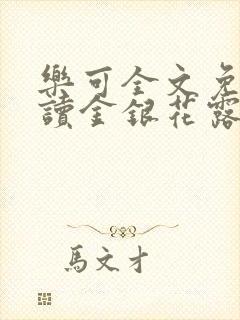 樂可全文免
讀金銀花露
馬文才